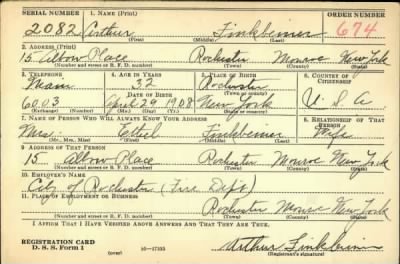 SERIAL NUMBER 1. NAME (Print) ORDER NUMBER
2082 Arthur Finkbeiner 674
(First) (Middle) (Last)
2. ADDRESS (Print)
15 Albow Place Rochester Monroe New York
(Number and street or R. F. D. number) (Town) (County) (State)
3. TELEPHONE 4. AGE IN YEARS 5. PLACE OF BIRTH 6. COUNTRY OF CITIZENSHIP
Main 32 Rochester
DATE OF BIRTH (Town or county)
6003 April 26 1908 New York U. S. A
(Exchange) (Number) (Mo.) (Day) (Yr.) (State or country)
7. NAME OF PERSON WHO WILL ALWAYS KNOW YOUR ADDRESS 8. RELATIONSHIP OF THAT PERSON
Mrs. Ethel Finkbeiner Wife
(Mr., Mrs., Miss) (First) (Middle) (Last)
9. ADDRESS OF THAT PERSON
15 Albow Place Rochester Monroe New York
(Number and street or R. F. D. number) (Town) (County) (State)
10. EMPLOYER'S NAME
City of Rochester (Fire Dept)
11. PLACE OF EMPLOYMENT OR BUSINESS
Rochester Monroe New York
(Number and street or R. F. D. number) (Town) (County) (State)
I AFFIRM THAT I HAVE VERIFIED ABOVE ANSWERS AND THAT THEY ARE TRUE.
REGISTRATION CARD
D. S. S. Form 1 (over) 16—17105 Arthur Finkbeiner
(Registrant's signature)